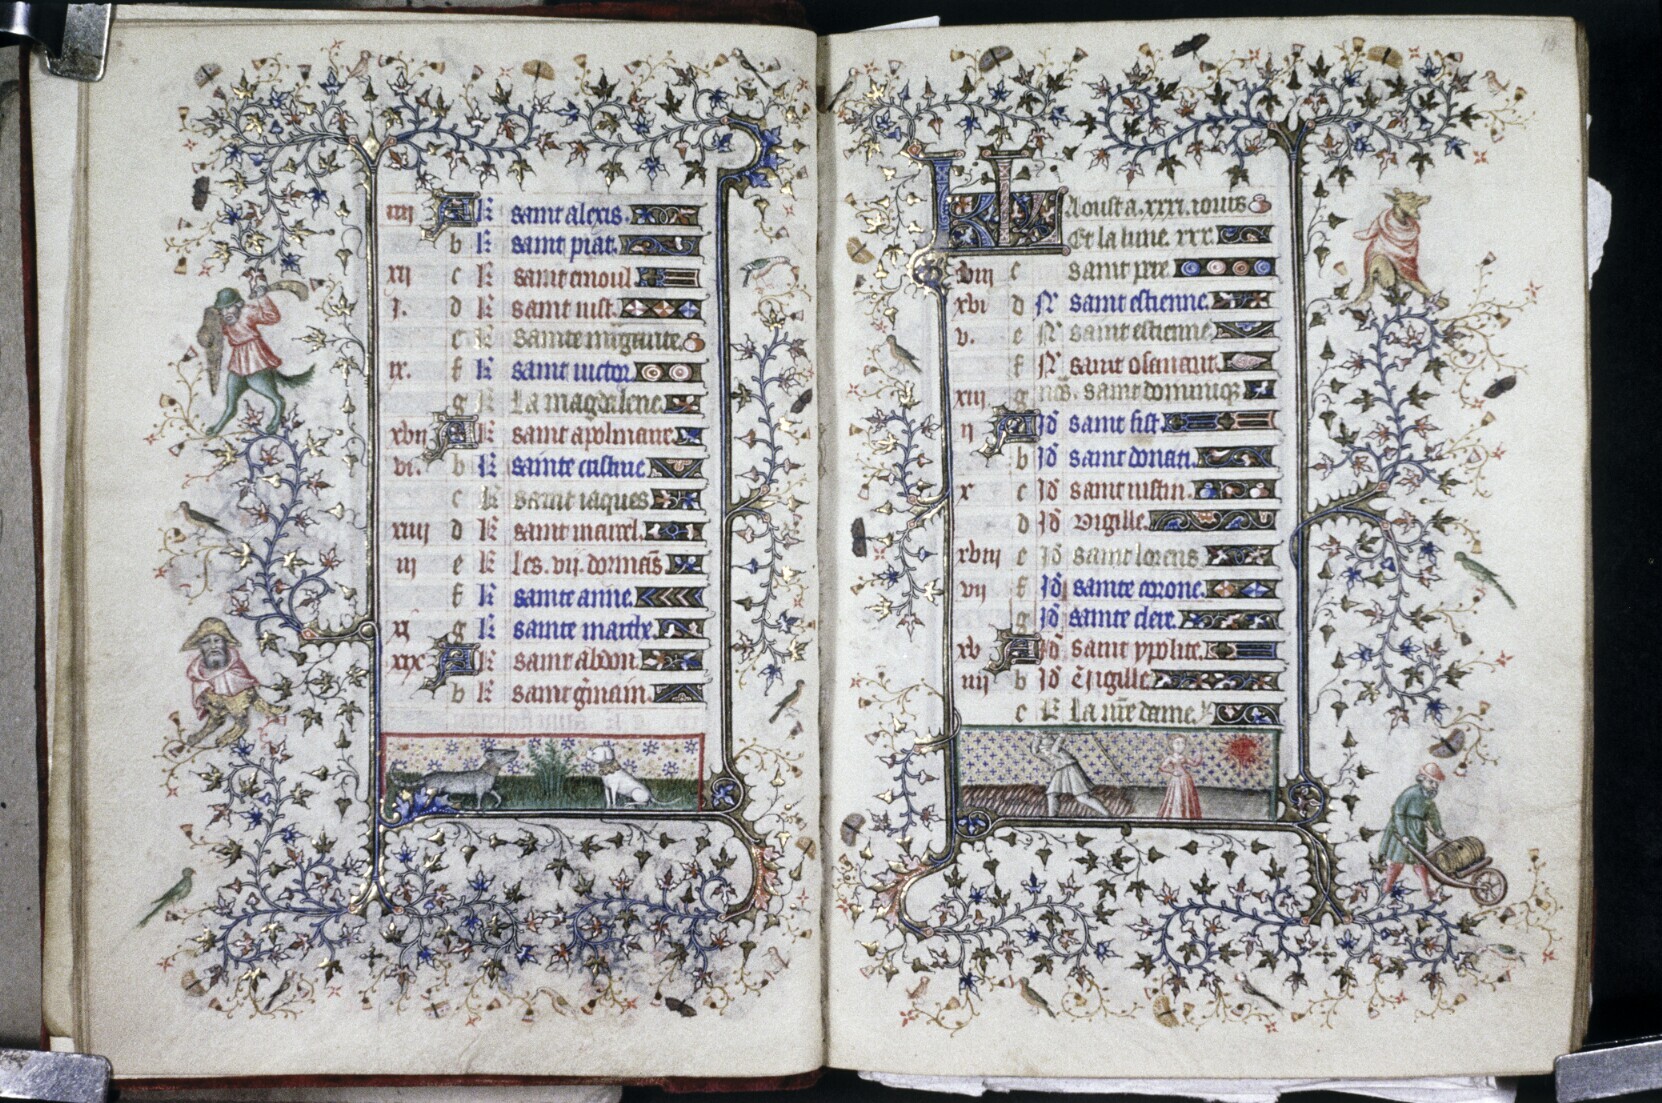 iiij A K saint alexis.
b K saint piat.
xij c K saint ernoul
j. d K saint iust.
e K sainte m̃g̃uite.
ix. f K saint uictor.
g K La magdalene.
xvij A K saint apolinaire
vi. b K sainte cristine
c K saint iaques
xiiij d K saint marcel.
iij e K Les .vij. dormãs
f K sainte anne.
xj g K sainte marthe.
xix A K saint abdon.
b K saint g̃main.
KL Aoust a .xxxi. iours
Et la lune .xxx.
viij c saint pere
xvi d N saint estienne.
v. e N saint estienne.
f N saint
xiij g saint dominiq̃
ij A Id saint sist.
b Id saint donati.
x c Id saint iustin.
d Id vigille.
xviij e Id saint lorens
vij f Id sainte corone.
g Id sainte clere.
xv A Id saint ypolite.
iiij b Id vigille
c K La nr̃e dame.